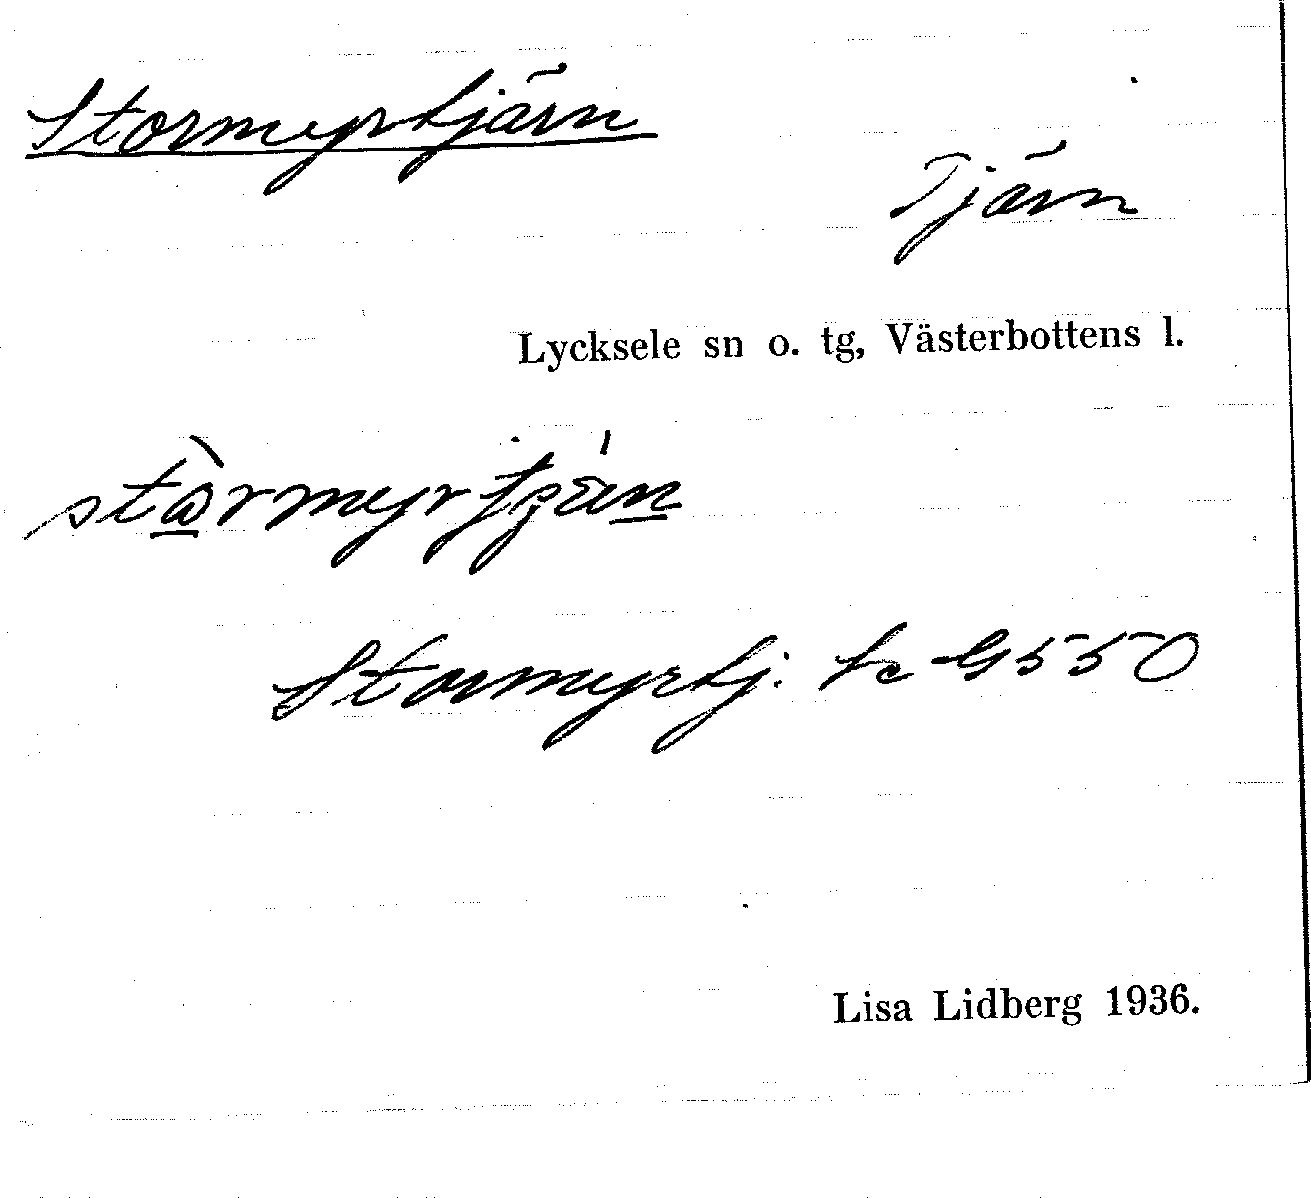 Stormyrtjärn
Tjärn
Lycksele sn o. tg, Västerbottens l.
Stormyrtj.
G 550
Lisa Lidberg 1936.